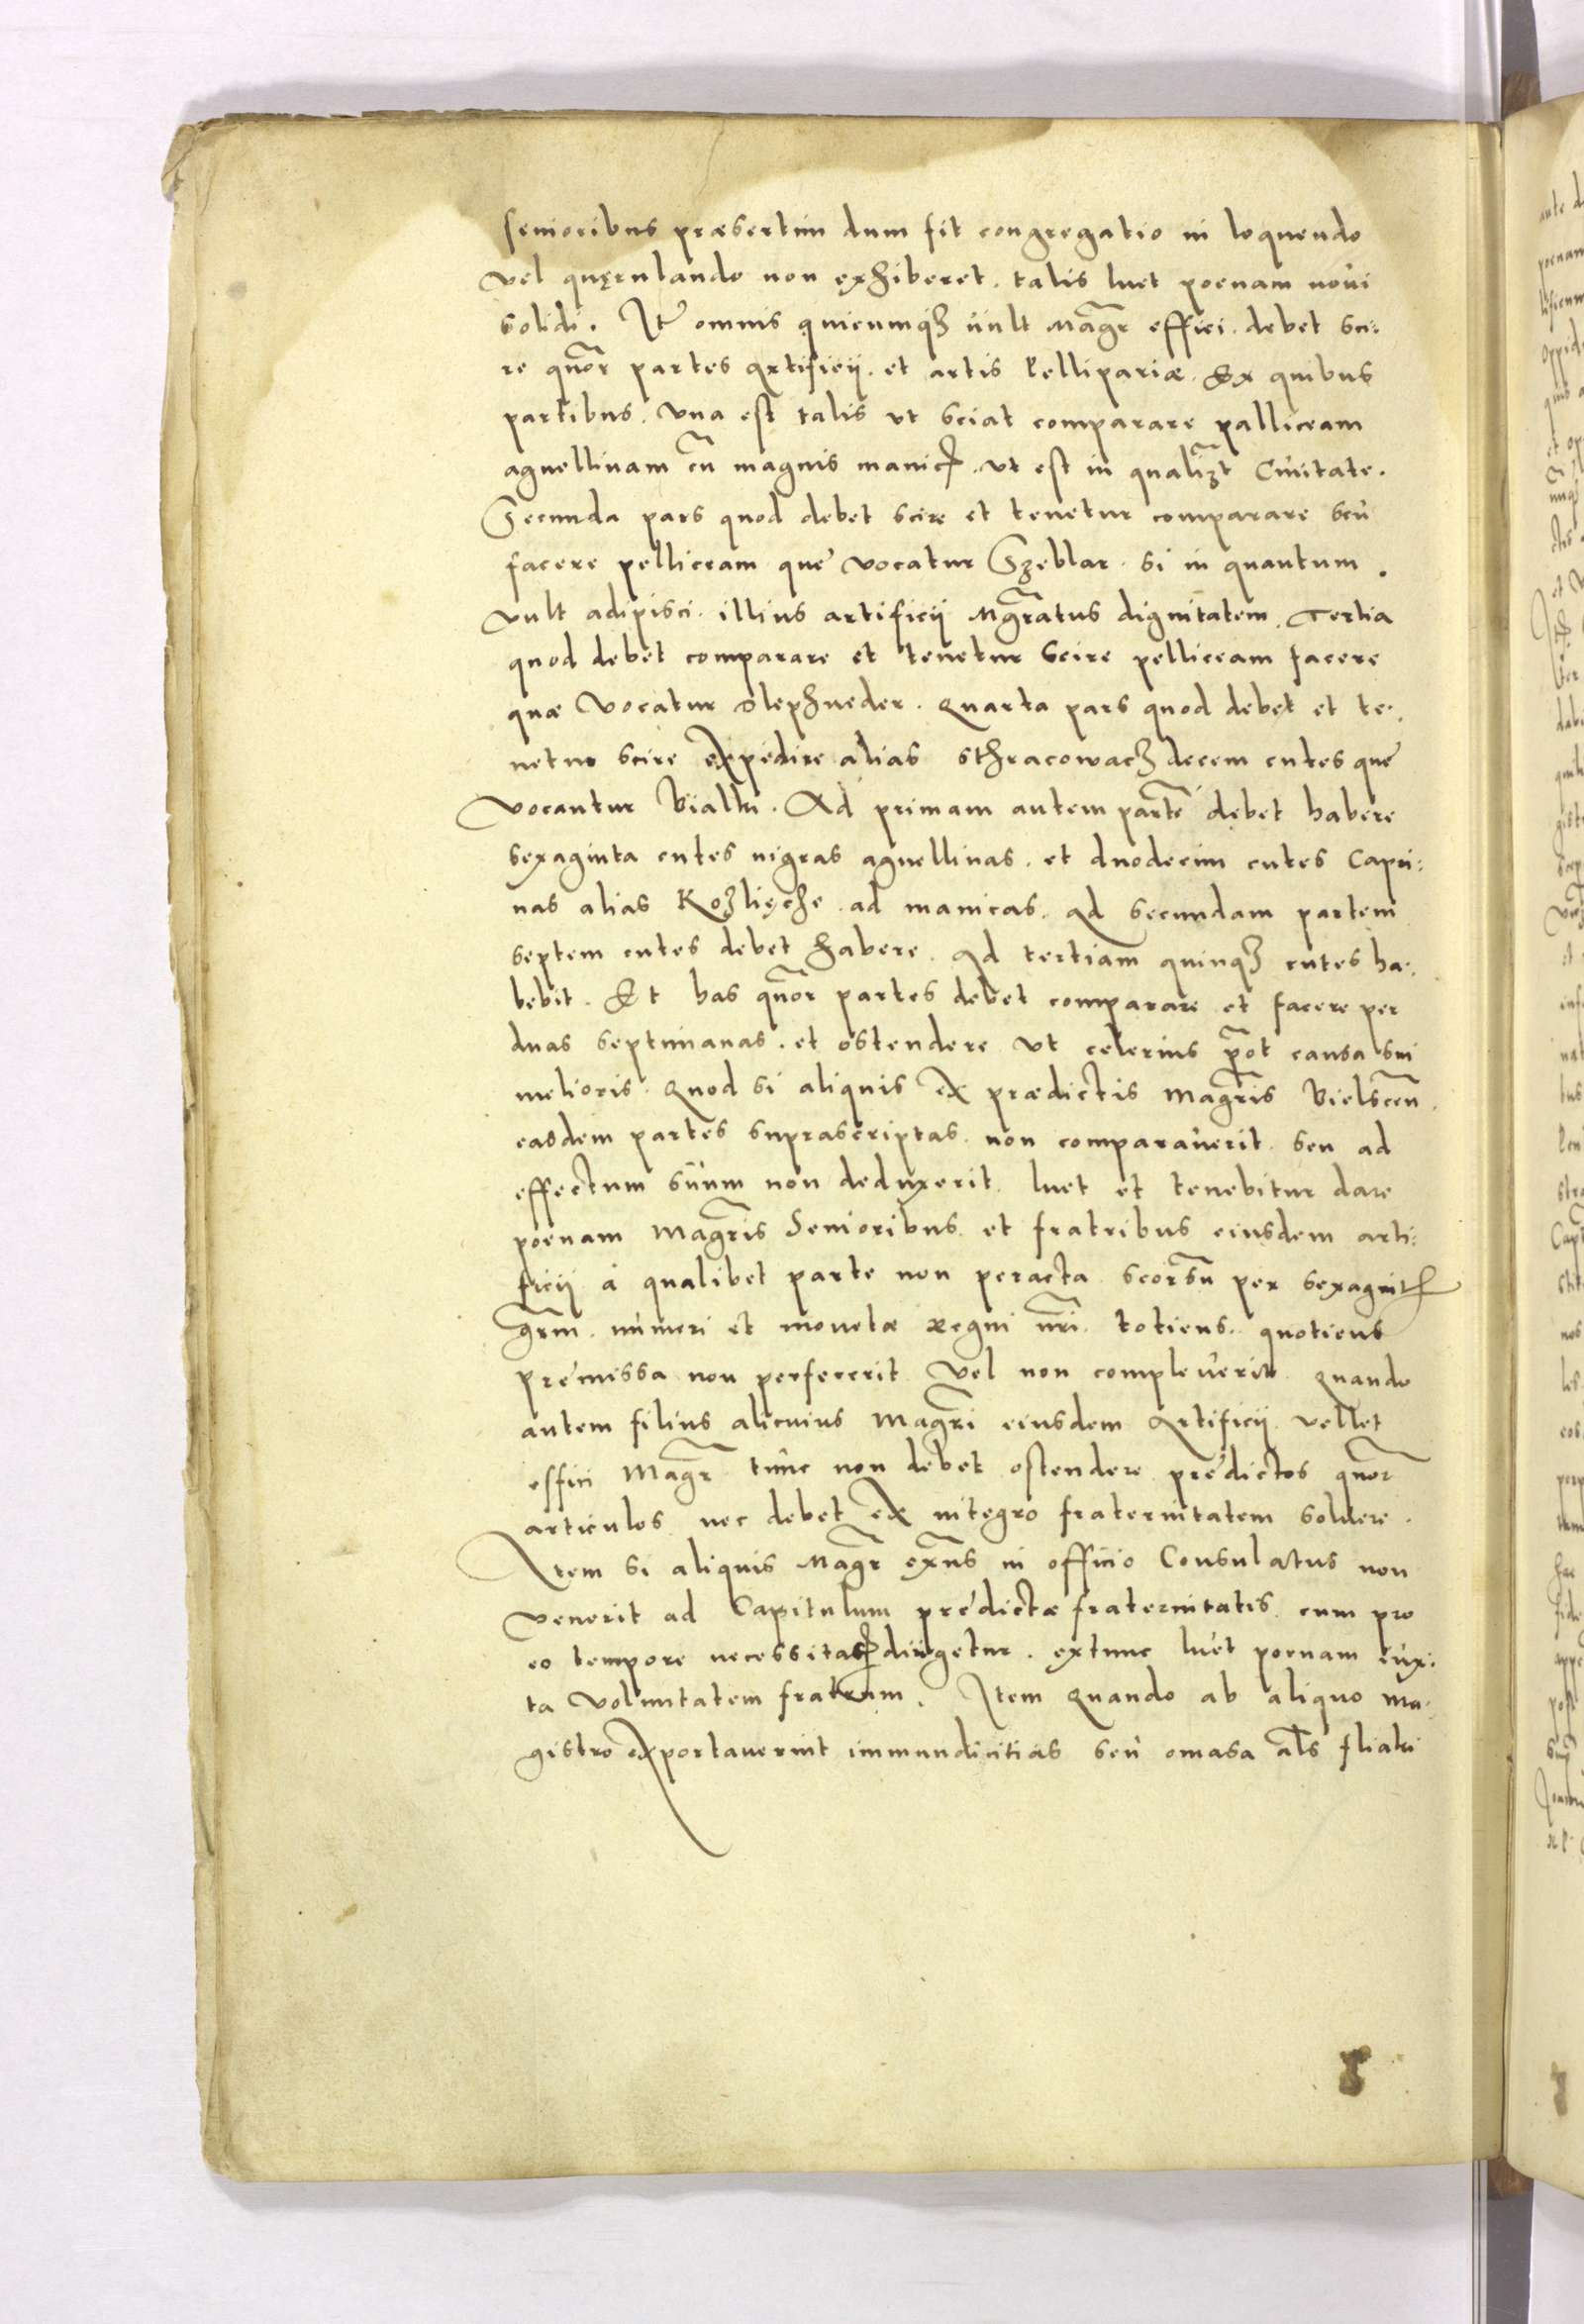 senioribus præsertim dum fit congregatio in loquendo
vel quęrulando non exhiberet. talis luet poenam novi
solidi. Itē omnis quicumqȝ vult Magr̄ effici. debet sci:
re quōr partes Artificii. et artis Pellipariæ. Ex quibus
partibus. Vna est talis vt sciat comparare palliceam
agnellinam cū magnis manic. vt est in qualiȝt Civitate.
Secunda pars quod debet scire et tenetur comparare seu
facere pelliceam quę vocatur Szeblar. si in quantum.
vult adipisci. illius artificii Mgr̄atus dignitatem. Tertia
quod debet comparare et tenetur scire pelliceam facere
quæ vocatur Slephneder. Quarta pars quod debet et te:
netur scire expedire alias sthracowacz decem cutes quę
vocantur Bialki. Ad primam autem partē debet habere
sexaginta cutes nigras agnellinas. et duodecim cutes Capri:
nas alias Kozlięche. ad manicas. Ad secundam partem
septem cutes debet habere. Ad tertiam quinqȝ cutes ha:
bebit. Et has quōr partes debet comparare et facere per
duas septimanas. et ostendere vt celerius prōt causa sui
melioris. Quod si aliquis ex prædictis Magr̄is Bielscen̄
easdem partes suprascriptas. non comparaverit. seu ad
effectum suum non deduxerit. luet et tenebitur dare
poenam Magr̄is Senioribus. et fratribus eiusdem arti:
ficii á qualibet parte non peracta seorsū per sexagint
gr̄m. numeri et monetæ Regni nr̄i. totiens. quotiens
pręmissa non perfecerit vel non compleverit. Quando
autem filius alicuius Magr̄i eiusdem Artificii vellet
effici Magr̄ tunc non debet ostendere prędictos quōr
articulos nec debet ex integro fraternitatem solvere.
Item si aliquis Magr̄ exn̄s in officio Consulatus non
venerit ad Capitulum prędictæ fraternitatis. cum pro
eo tempore necessitas dirigetur. extunc luet poenam iux:
ta voluntatem fratrum. Item Quando ab aliquo Ma:
gistro exportaverint immundicitias seu omasa al̄s fliaki